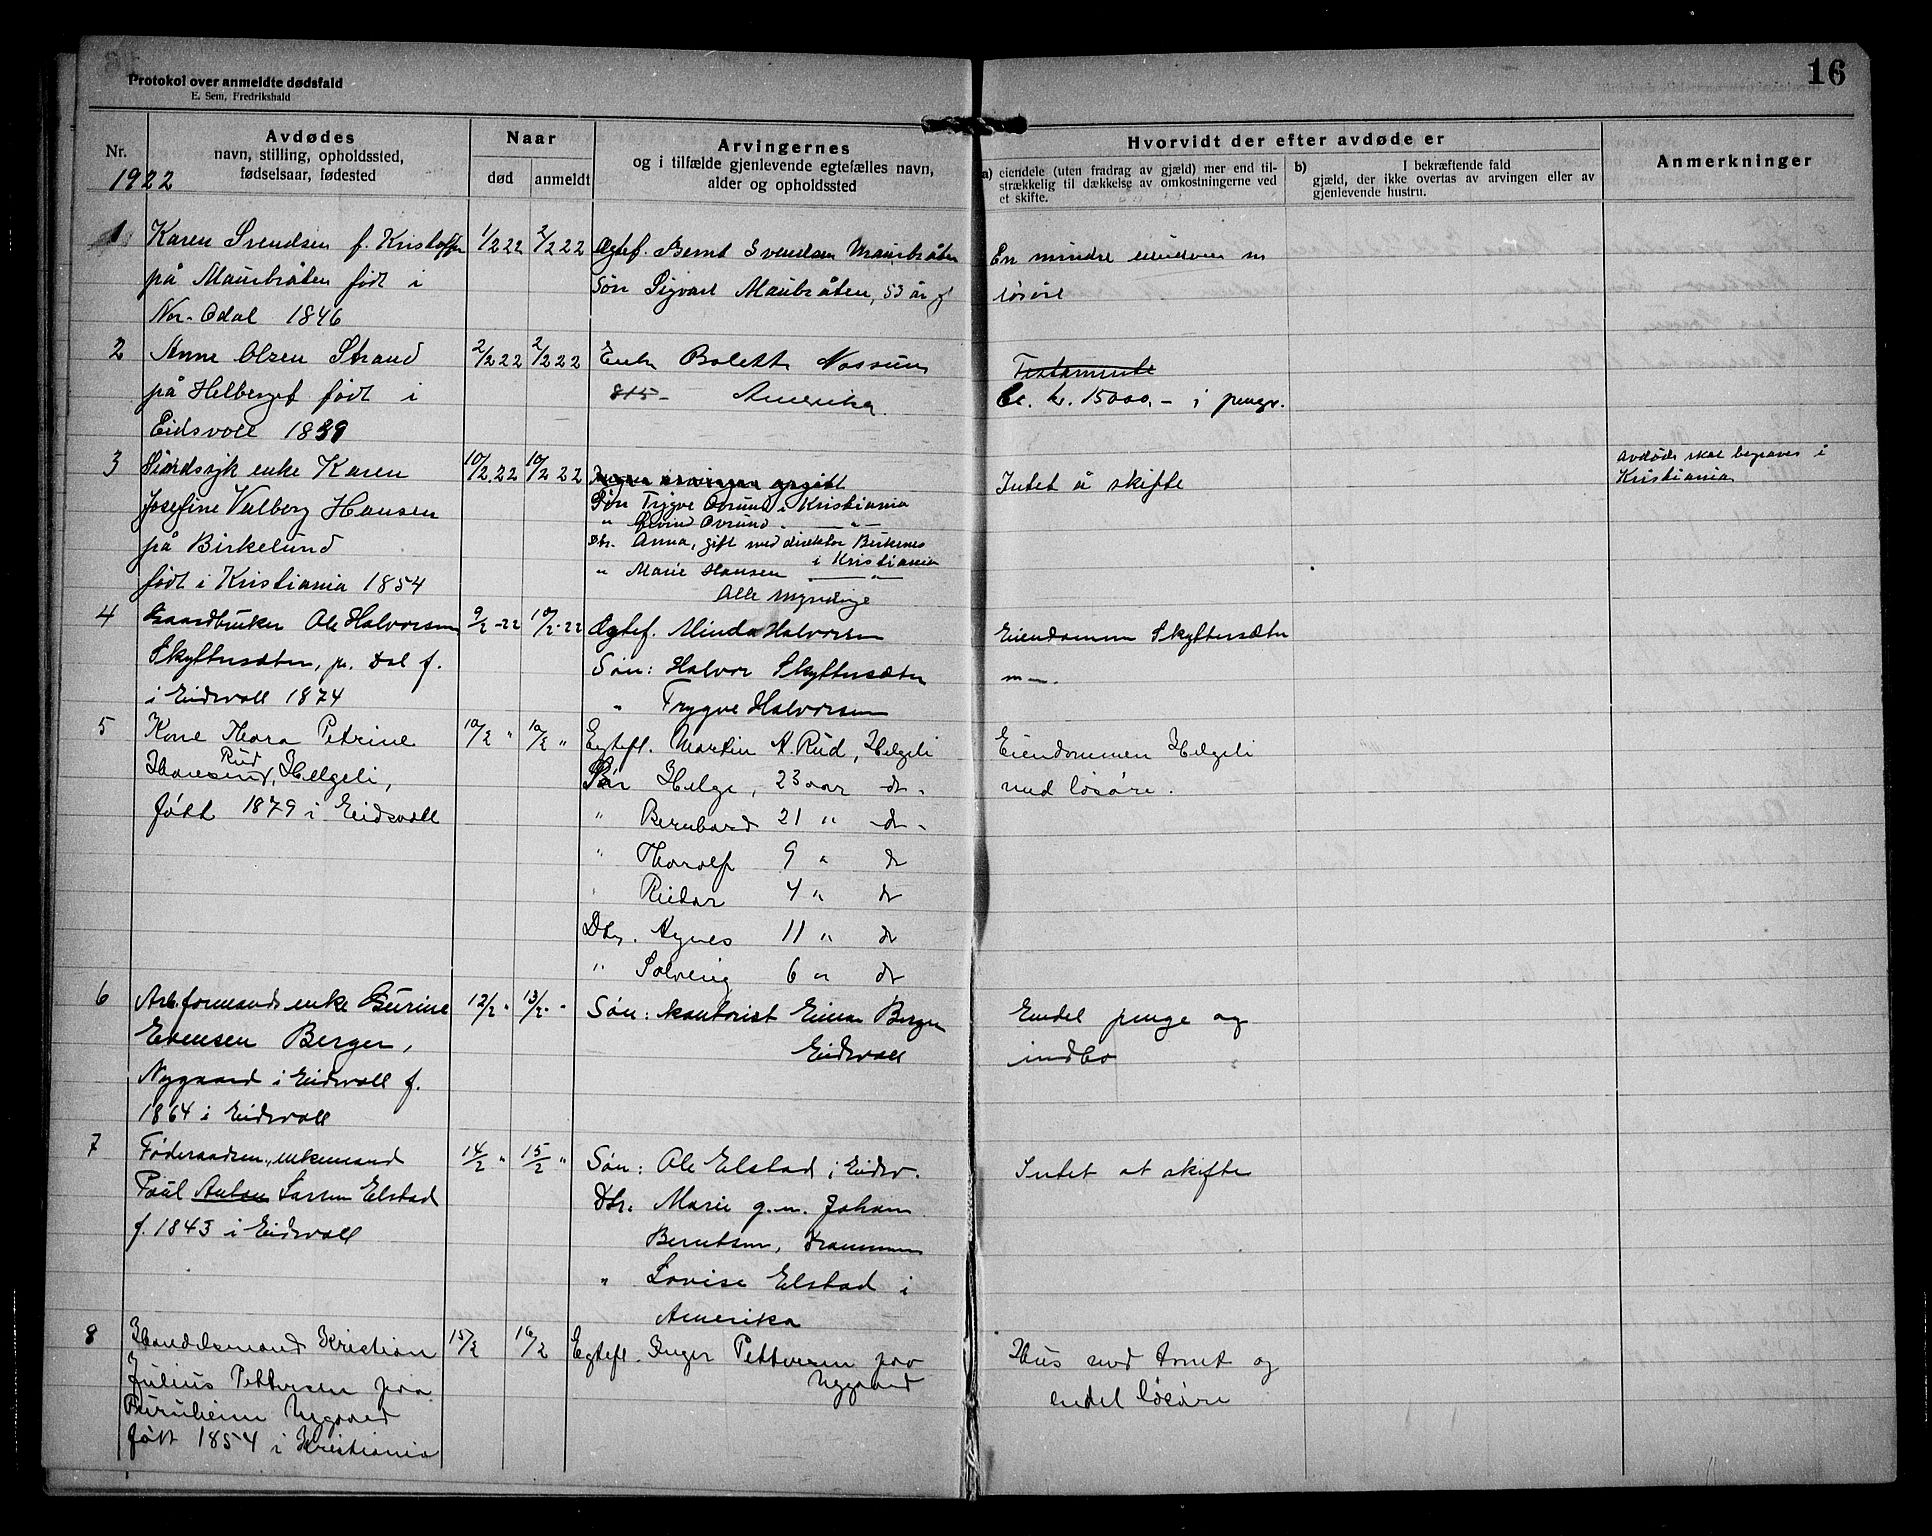 16
Protokol over anmeldte dødsfald
E. Sem, Fredrikshald
Nr.
1922
Avdødes
navn, stilling, opholdssted,
fødselsaar, fødested
Naar
død
anmeldt
Arvingernes
og i tilfælde gjenlevende egtefælles navn,
alder og opholdssted
Hvorvidt der efter avdøde er
a) eiendele (uten fradrag av gjæld) mer end til-
strækkelig til dækkelse av omkostningerne ved
et skifte.
b) I bekræftende fald
gjæld, der ikke overtas av arvingen eller av
gjenlevende hustru.
Anmerkninger
1
Karen Svendsen f. Kristoffer
på Maurbråten født i
Nor-Odal 1846
1/2 22
2/2 22
Ægtef. Bernt Svendsen Maurbråten
Søn Sigvart Maurbråten, 53 år gl
En mindre eiendom m
løsøre
2
Anne Olsen Strand
på Helberget født i
Eidsvoll 1839
2/2 22
2/2 22
Enke Bolette Nossum
815 - Amerika
Testamente
Ca. kr. 15000.- i penge.
3
enke Karen
Josefine Valborg Hansen
på Birkelund
født i Kristiania 1854
10/2 22
10/2 22
Ingen arvinger opgitt
Søn Trygve Ovrund i Kristiania
" Eivind Ovrund " "
Dtr. Anna, gift med direktør Birkenes
i Kristiania
" Marie Hansen "
Alle myndige
Intet å skifte
Avdøde skal begraves i
Kristiania
4
Gaardbruker Ole Halvorsen
Skyttersæter, pr. Dal f.
i Eidsvoll 1874
9/2 -22
10/2 -22
Ægtef. Minda Halvorsen
Søn: Halvor Skyttersæter
" Trygve Halvorsen
Eiendommen Skyttersæter
m.m.
5
Kone Thora Petrine
Rud
Hansesund, Helgeli,
født 1879 i Eidsvoll
10/2 "
10/2 "
Egtefl. Martin A. Rud, Helgeli
Søn Helge, 23 aar do
" Bernhard 21 " do
" Thorolf 9 " do
" Reidar 4 " do
Dtr. Agnes 11 " do
" Solveig 6 " do
Eiendommen Helgeli
med løsøre.
6
Arb.formands enke Gurine
Evensen Berger,
Nygaard i Eidsvoll f.
1864 i Eidsvoll
12/2 "
13/2 "
Søn: kontorist Einar Berger
Eidsvoll
Endel penge og
indbo
7
Føderaadsm., enkemand
Paul Anton Larsen Elstad
f. 1843 i Eidsvoll
14/2 "
15/2 "
Søn: Ole Elstad i Eidsv.
Dtr. Marie g.m. Johan
Berntsen, Drammen
" Lovise Elstad i
Amerika
Intet at skifte
8
Handelsmand Kristian
Julius Pettersen paa
Burnheim Nygaard
født 1854 i Kristiania
15/2
16/2
Egtefl. Inger Pettersen paa
Nygaard
Hus med tomt og
endel løsøre